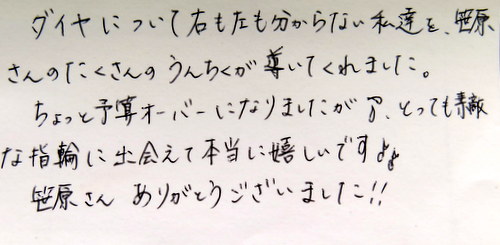 ダイヤについて右も左も分からない私達を、笹原
さんのたくさんのうんちくが導いてくれました。
ちょっと予算オーバーになりましたが、とっても素敵
な指輪に出会えて本当に嬉しいです♪♪
笹原さん ありがとうございました!!